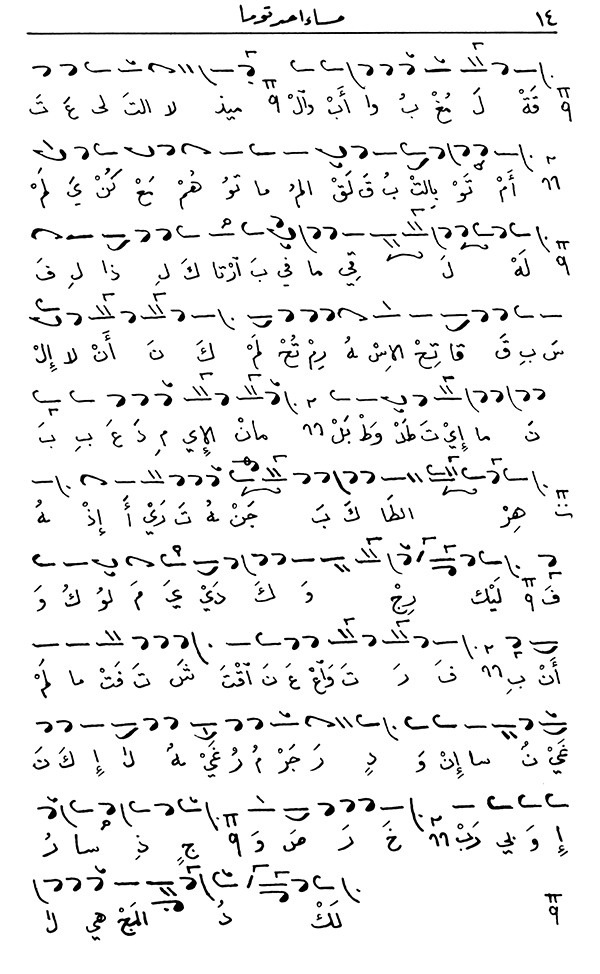 ١٤ مساء احد توما
قَةْ لَ مُغْ بُ وا أَبْ وَآلْ ميذ لا التَ لى عَ تَ
أَمْ تَوْ بِالتْ بُ قَ لَقْ المُ ما توُ هُمْ مَعْ كُنْ يَ لَمْ
لَهْ لَ قِي ما في بَ اَرْتا كَ لِ ذا لِ فَ
سَ بِ قَ قا تِحْ الاِسْ هُ رِمْ تُحْ لَمْ كَ نَ أَنْ لا إِلْ
تَ ما إِيْ تَ طَدْ وَطْ بَلْ مانْ الإِي مِ ذَ عَ بِ بَ
هِرْ الطَا كَ بَ جَنْ هُ تَ رَيْ أَ إِذْ هُ
فَ لَيْك رِجْ وَ كَ دَيْ يَ مَ لوُ كُ وَ
أَنْ بِ فَ رَ تَ وَاَعْ عَ نَ اَقْتَ شَ تَ فَتْ ما لَمْ
غَيْ نُ سا إِنْ وَ دٍ رَ جَرْ مُ رُ غَيْ هُ لا إِ كَ نَ
إِ وَ بي رَبْ خَ رَ صَ وَ جٍ ذِ سا رُ
لَكْ دُ المَجْ هي لا